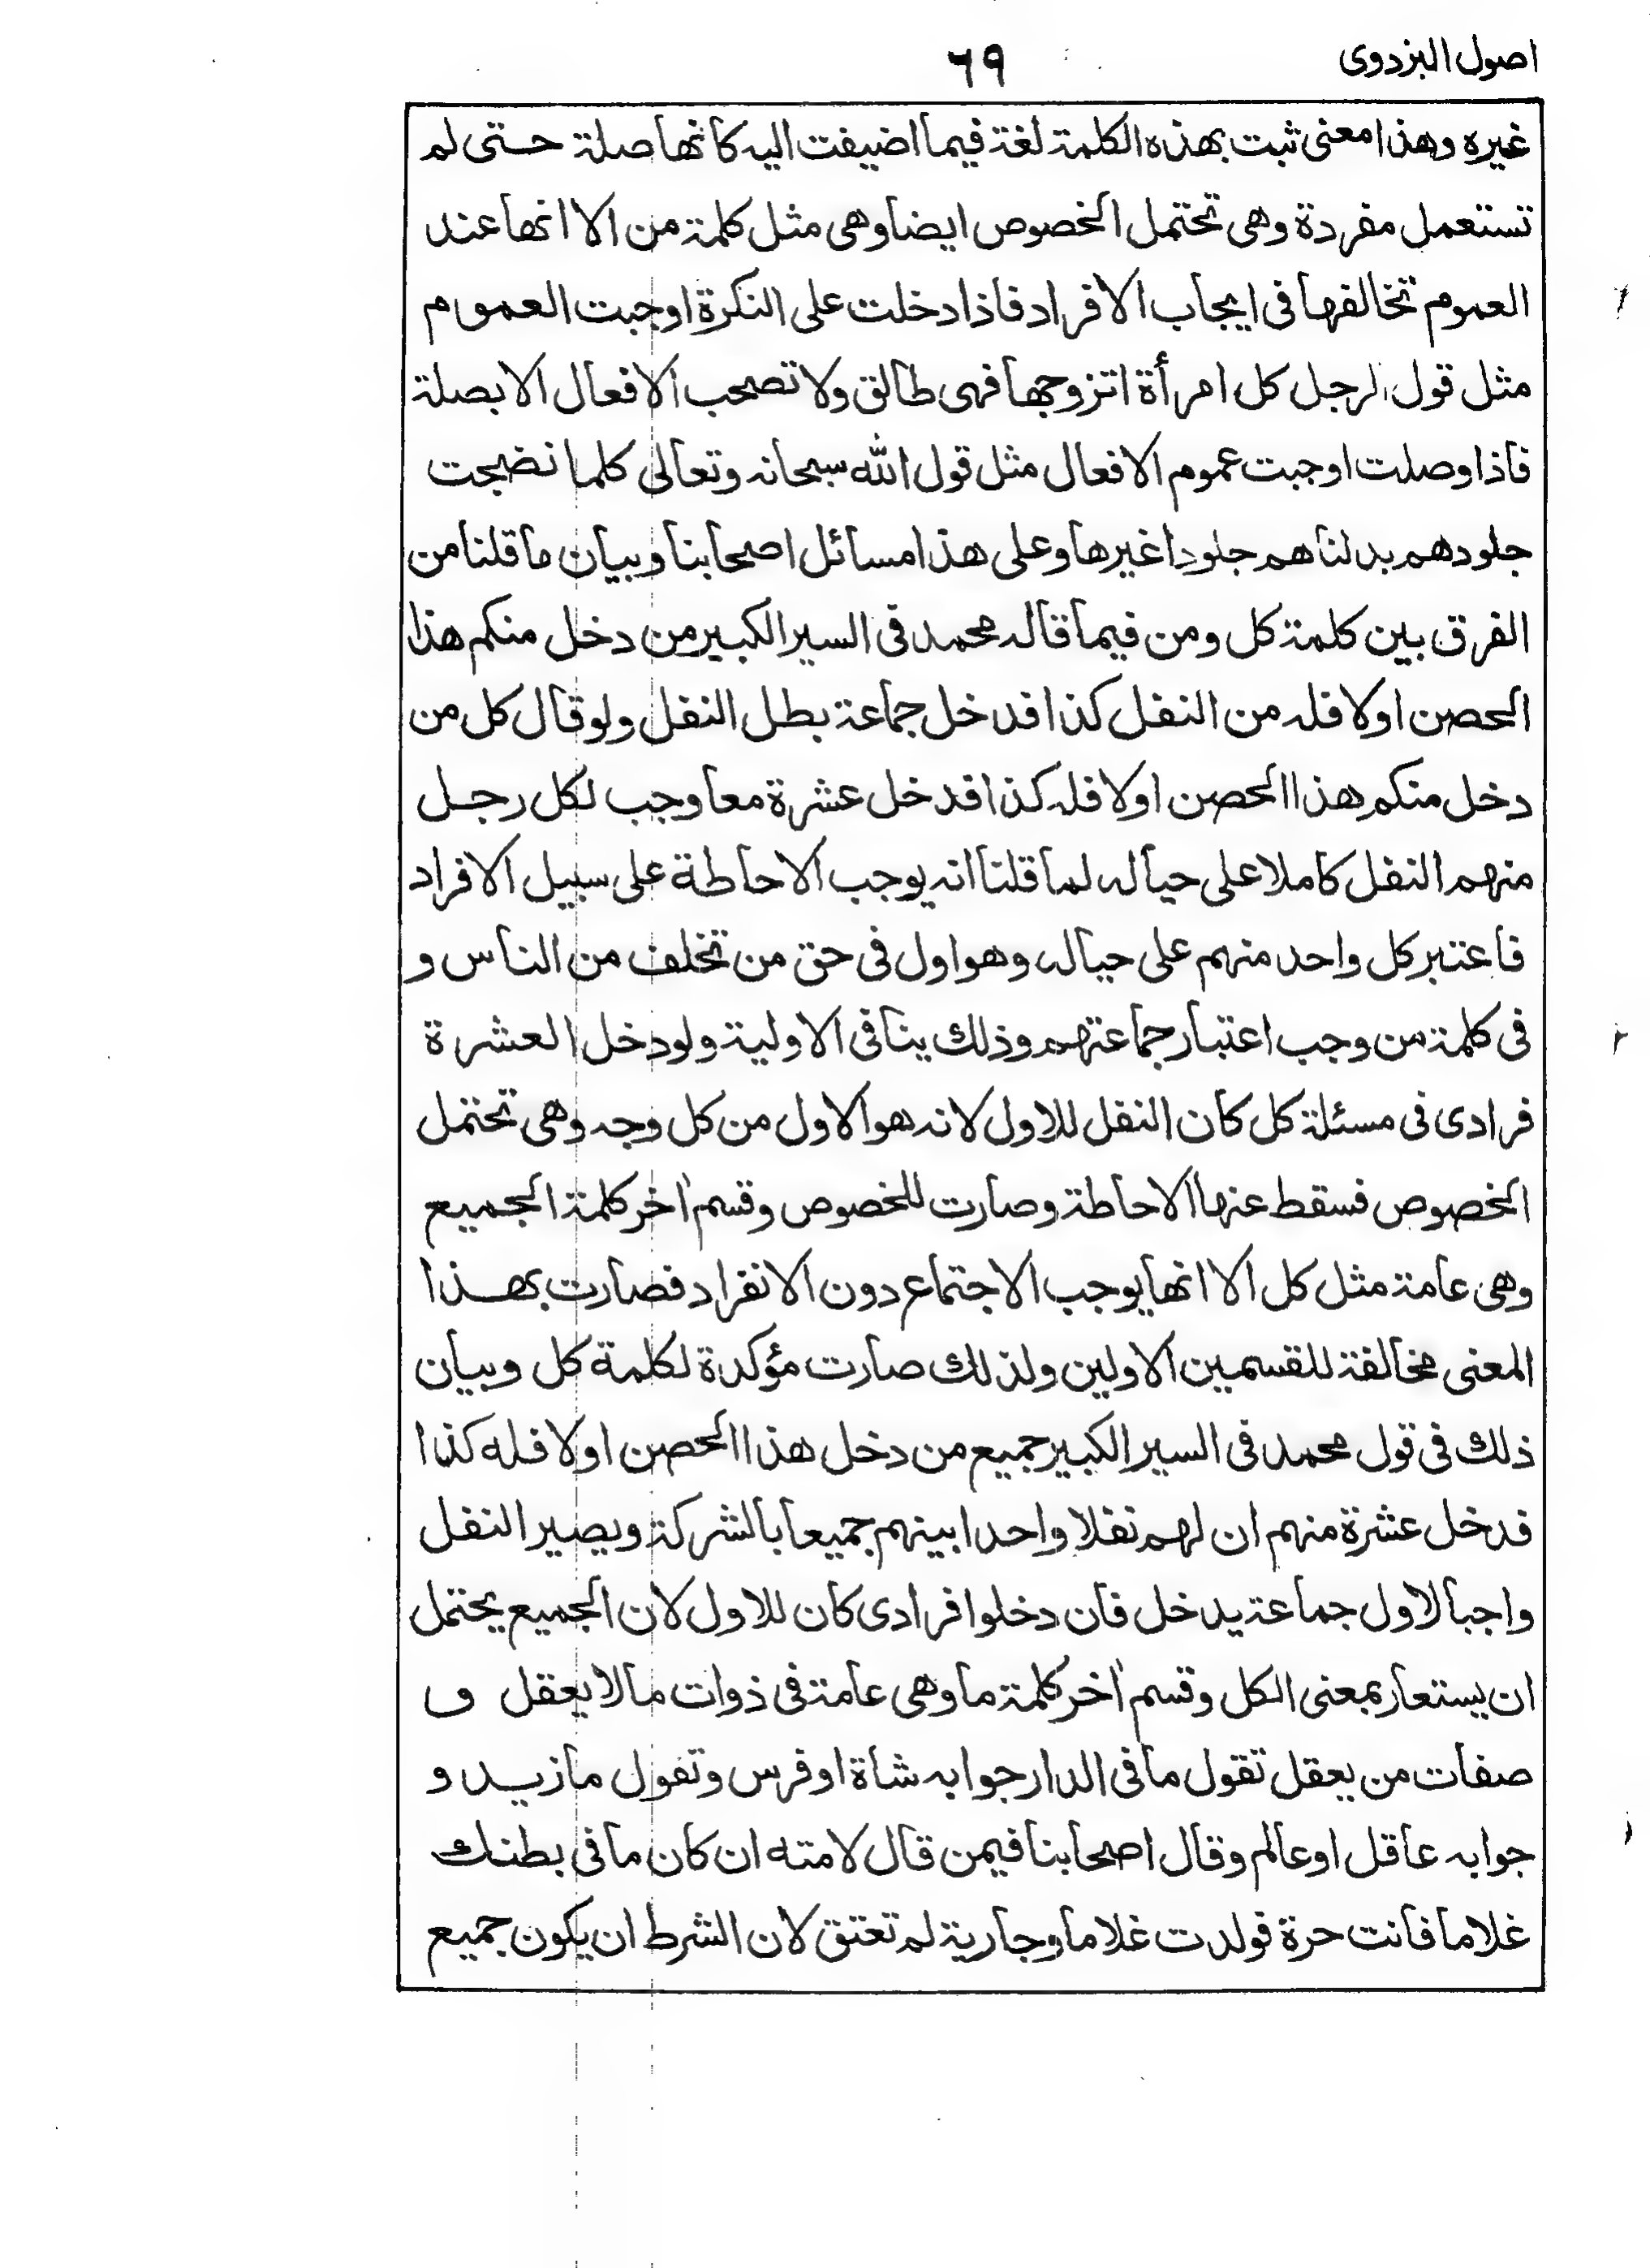 اصول البزدوى
٦٩
غيره وهذا معنى ثبت بهذه الكلمة لغة فيما اضيفت اليه كانها صلة حتى لم
تستعمل مفردة وهى تحتمل الخصوص ايضا وهى مثل كلمة من الا انها عند
العموم تخالفها فى ايجاب الافراد فاذا دخلت على النكرة اوجبت العموم
مثل قول الرجل كل امرأة اتزوجها فهى طالق ولا تصحب الافعال الا بصلة
فاذا وصلت اوجبت عموم الافعال مثل قول الله سبحانه وتعالى كلما نضجت
جلودهم بدلناهم جلودا غيرها وعلى هذا مسائل اصحابنا وبيان ما قلنا من
الفرق بين كلمة كل ومن فيما قاله محمد فى السير الكبير من دخل منكم هذا
الحصن اولا فله من النفل كذا فدخل جماعة بطل النفل ولو قال كل من
دخل منكم هذا الحصن اولا فله كذا فدخل عشرة معا وجب لكل رجل
منهم النفل كاملا على حياله لما قلنا انه يوجب الاحاطة على سبيل الافراد
فاعتبر كل واحد منهم على حياله وهو اول فى حق من تخلف من الناس و
فى كلمة من وجب اعتبار جماعتهم وذلك ينافى الاولية ولو دخل العشرة
فرادى فى مسئلة كل كان النفل للاول لانه هو الاول من كل وجه وهى تحتمل
الخصوص فسقط عنها الاحاطة وصارت للخصوص وقسم اٰخر كلمة الجميع
وهى عامة مثل كل الا انها يوجب الاجتماع دون الانفراد فصارت بهذا
المعنى مخالفة للقسمين الاولين ولذلك صارت مؤكدة لكلمة كل وبيان
ذلك فى قول محمد فى السير الكبير جميع من دخل هذا الحصن اولا فله كذا
فدخل عشرة منهم ان لهم نفلا واحدا بينهم جميعا بالشركة ويصير النفل
واجبا لاول جماعة يدخل فان دخلوا فرادى كان للاول لان الجميع يحتمل
ان يستعار بمعنى الكل وقسم اٰخر كلمة ما وهى عامة فى ذوات مالا يعقل و
صفات من يعقل تقول ما فى الدار جوابه شاة او فرس وتقول ما زيد و
جوابه عاقل او عالم وقال اصحابنا فيمن قال لامته ان كان ما فى بطنك
غلاما فانت حرة فولدت غلاما وجارية لم تعتق لان الشرط ان يكون جميع